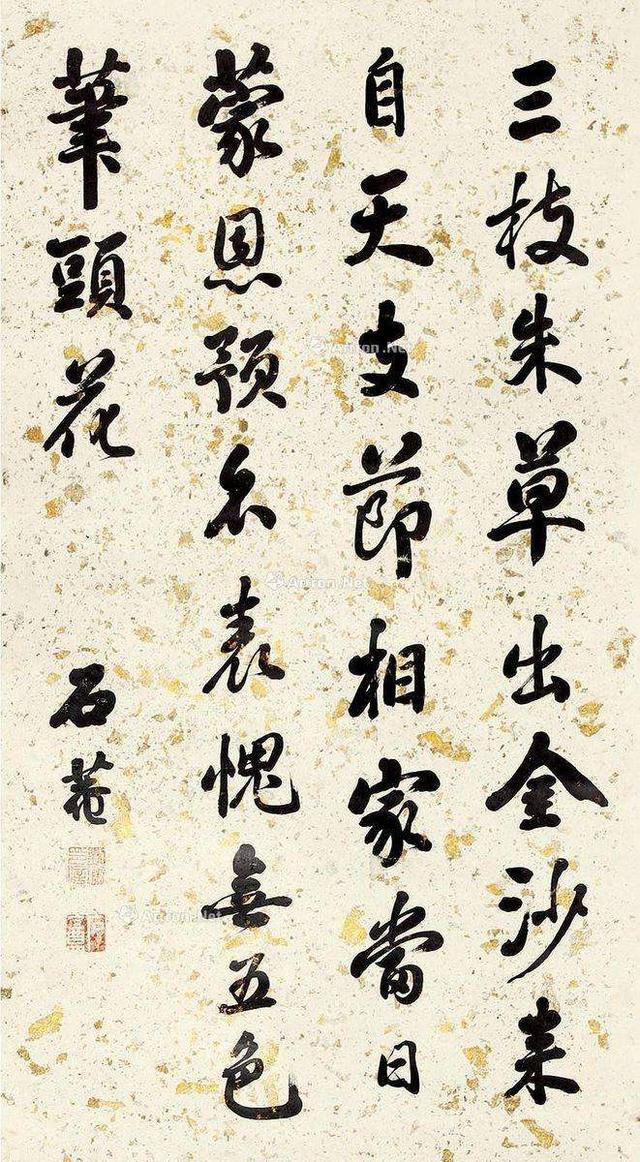 三枝朱草出金沙来
自天支節相家當日
蒙恩預名表愧無五色
筆頭花
石菴
Artron.Net
Artron.Net
Artron.Net